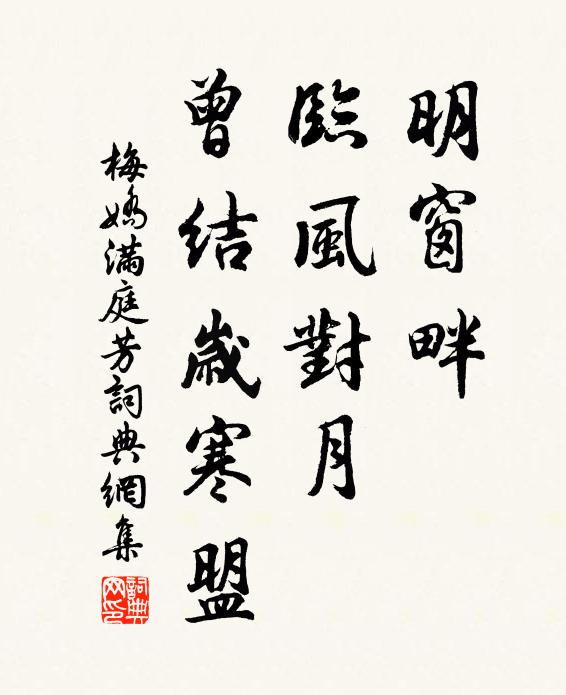 明窗畔
臨風對月
曾結歲寒盟
梅嬌滿庭芳詞典網集
詞典網印